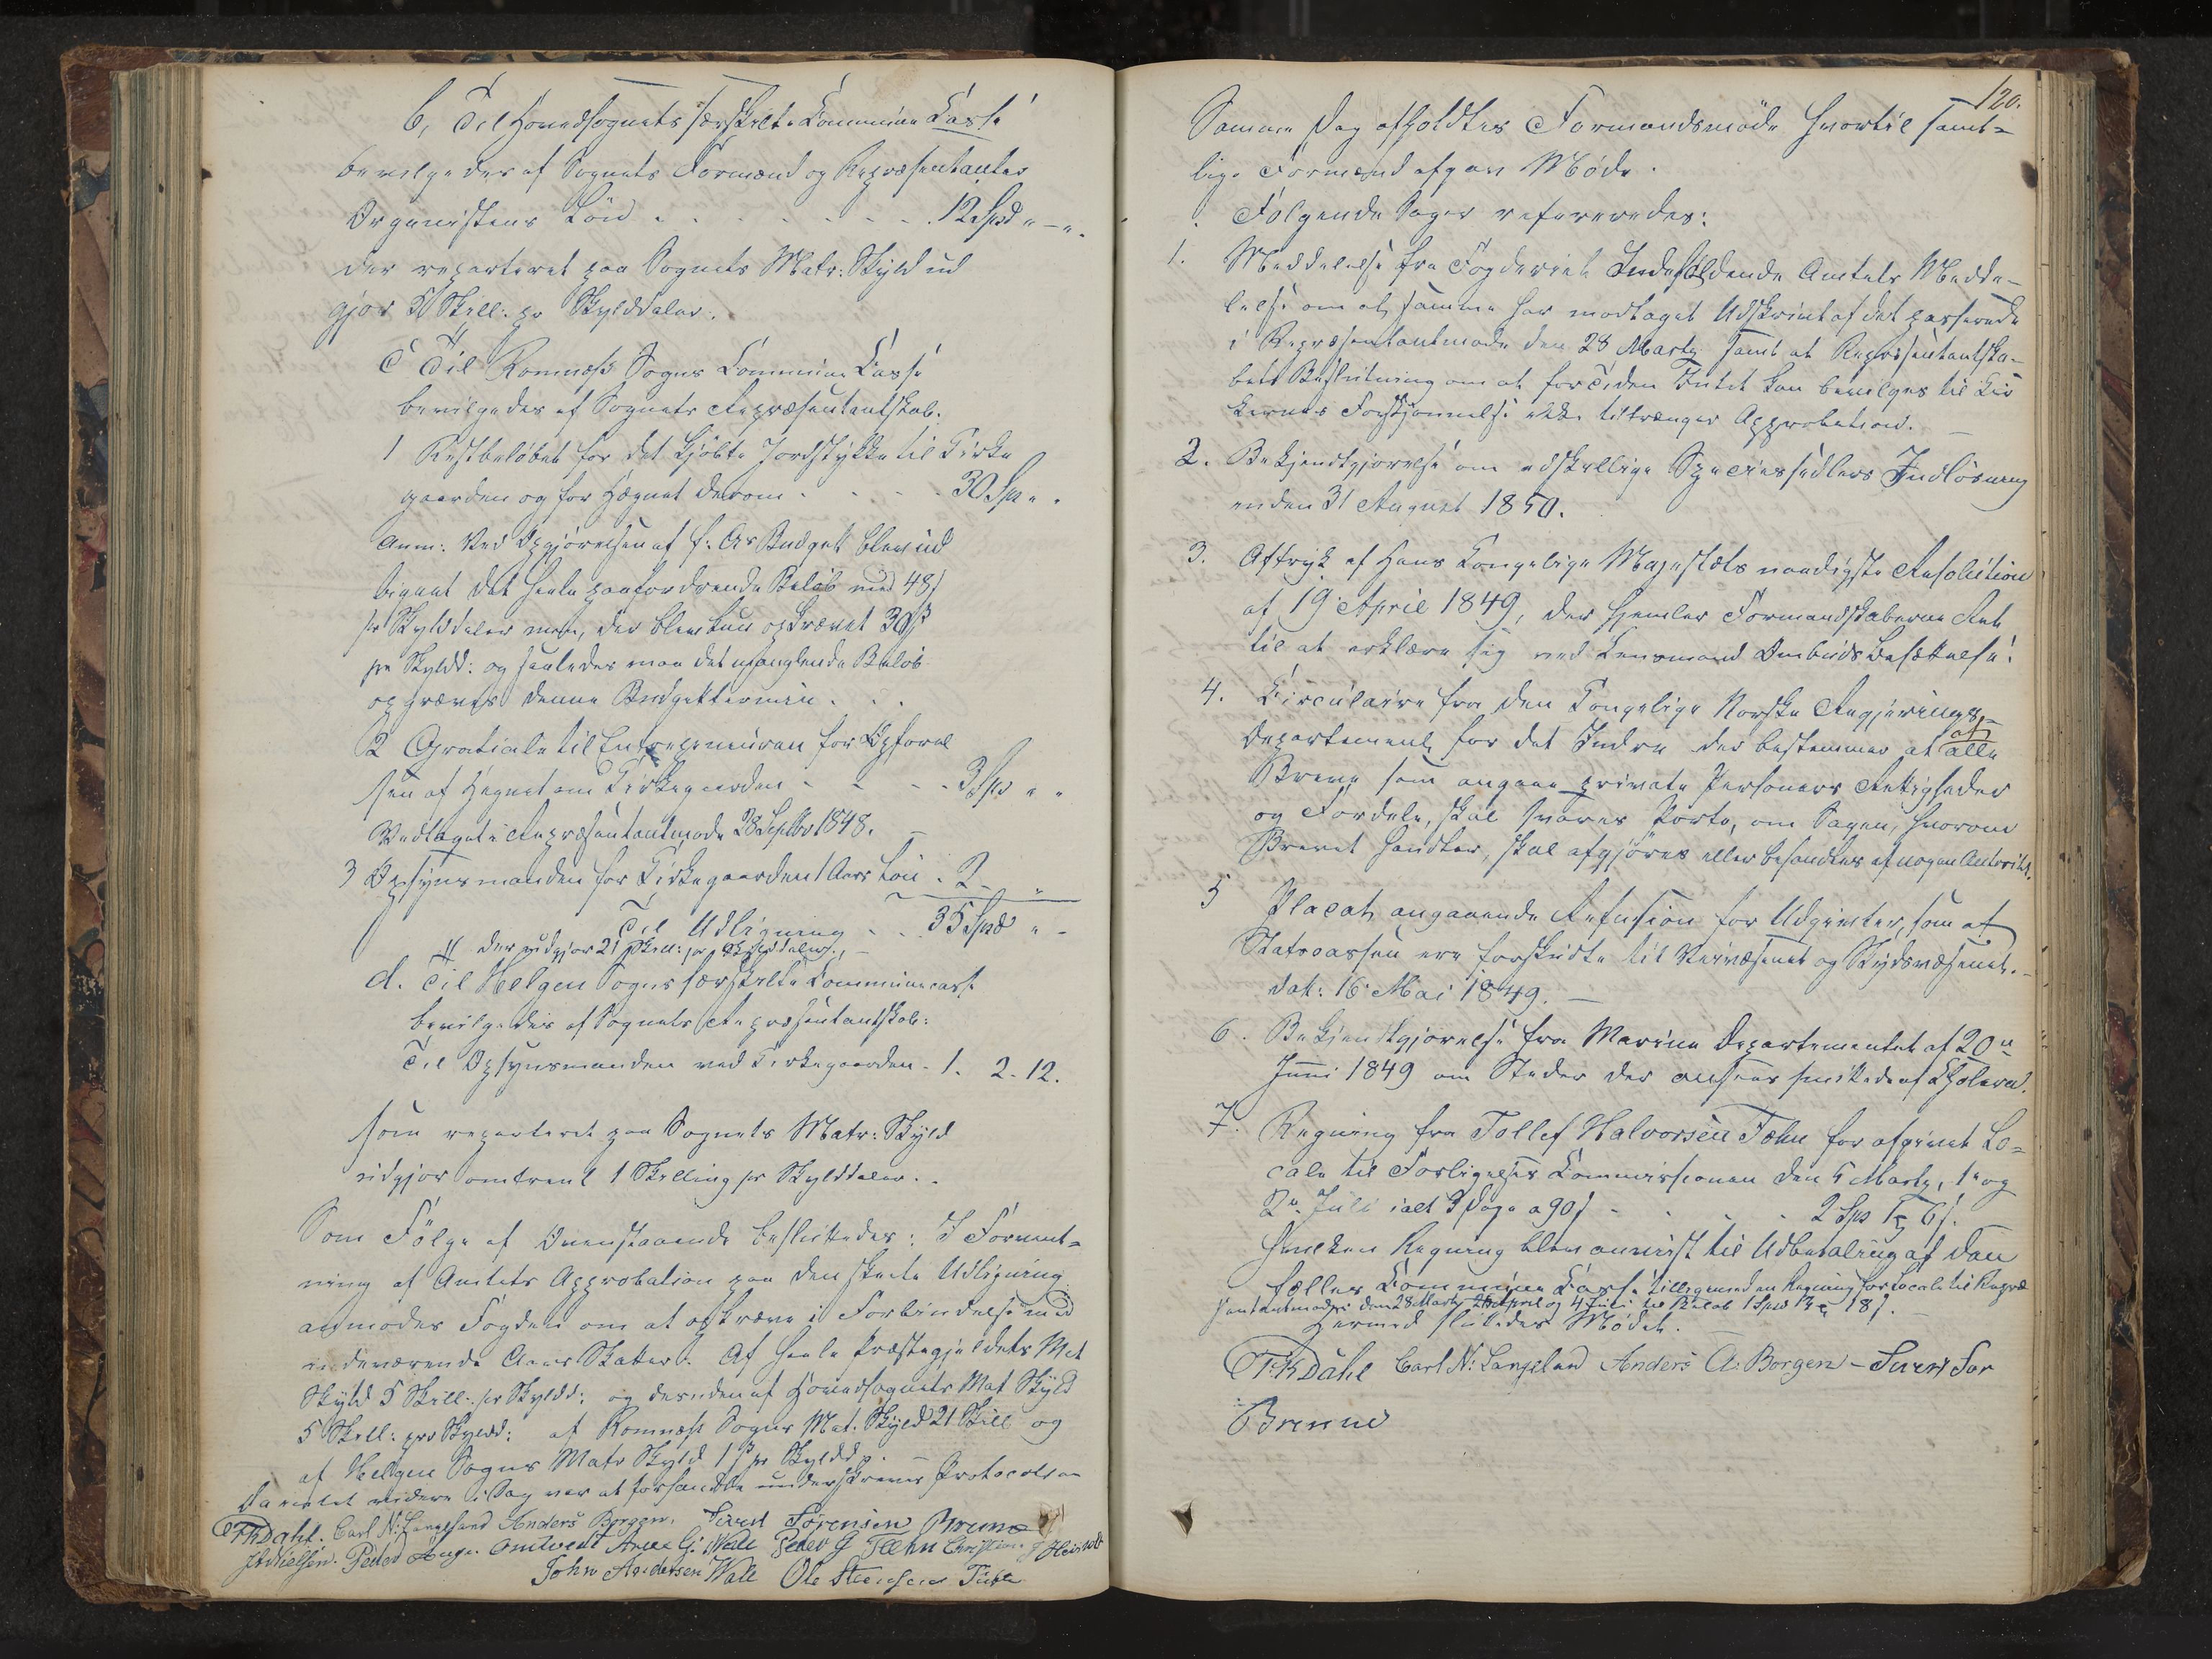 b, Til Hovedsognets særskilte Commune Casse
bevilgedes af Sognets Formænd og Repræsentanter
Organistens Løn . . . . . . . 12 Spd " - ".
der reparteret paa Sognets Matr: Skyld ud
gjør 5 Skill: pr Skylddaler.
C Til Romnæs Sogns Commune Casse
bevilgedes af Sognets Repræsentantskab.
1 Restbeløbet for det kjöbte Jordstykke til Kirke
gaarden og for Hegnet derom . . . . 30 Spd " .
Anm: Ved Opgjørelsen af f: Ars Budget blev ud
lignet det heele paafordrende Beløb med 48 ß
pr Skylddaler men, der blev kun opkrævet 30 ß
pr Skyldd: og saaledes maa det manglende Beløb
opkræves denne Budgettermin . . .
2 Gratiale til Entrepreneuren for Opførel
sen af Hegnet om Kirkegaarden - - - 3 Spd " "
Vedtaget i Repræsentantmøde 28 Septbr 1848. -
3 Opsynsmanden for Kirkegaarden 1 Aars Løn . 2 - "
Til Udligning - . . 35 Spd " -
der udgjør 21 Skill: pr Skylddaler. -
d. Til Helgen Sogns særskilte Communecasse
bevilgedes af Sognets Repræsentantskab:
Til Opsynsmanden ved Kirkegaarden . 1. 2. 12.
som reparteret paa Sognets Matr: Skyld
udgjør omtrent 1 Skilling pr Skylddaler. .
Som Følge af Ovenstaaende besluttedes: I Forvent-
ning af Amtets Approbation paa den skeete Udligning
anmodes Fogden om at opkræve i Forbindelse med
indeværende Aars Skatter. Af heele Præstegjeldets Mat
Skyld 5 Skill: pr Skyldd: og desuden af Hovedsognets Mat Skyld
5 Skill: pro Skyldd: af Romnæs Sogns Mat: Skyld 21 Skill og
af Helgen Sogns Matr Skyld 1 ß pr Skyldd.
Da intet videre i Sag var at forhandle underskreves Protocollen
Dahl. Carl N: Langeland Anders Borgen. Sivert Sørensen Brenne
Nielsen. Peder Aug. Omtvedt G: Wale Peder G Tæhn Christian
John Andersen Wale Ole
120.
Samme Dag afholdtes Formandsmøde hvortil samt-
lige Formænd afgav Møde.
Følgende Sager refereredes:
1. Meddelelse fra Fogderiet Indeholdende Amtets Medde-
lelse om at samme har modtaget Udskrivt af det passerede
i Repræsentantmøde den 28 Marty samt at Repræsentantska-
bets Beslutning om at for Tiden Intet kan bevilges til Kir
kernes Forskjønnelse ikke tiltrænger Approbation. -
2. Bekjendtgjørelse om adskillige Speciessedlers Indløsning
inden 31 August 1850.
3. Aftryk af Hans Kongelige Majestæts naadigste Resolution
af 19 April 1849, der hjemler Formandskaberne Ret
til at erklære sig ved Lensmand Ombuds Besættelse.
4. Circulaire fra den Kongelige Norske Regjerings-
departement for det Indre der bestemmer at af alle
Breve som angaae private Personers Rettigheder
og Fordele, skal svares Porto, om Sagen, hvorom
Brevet handler, skal afgjøres eller behandles af nogen Autoritet.
5 Placat angaaende Refusion for Udgivter, som af
Statscassen ere forskudte til Veivæsenet og Skydsvæsenet.
dat: 16 Mai 1849. -
6. Bekjendtgjørelse fra Marine Departementet af 20 "
Juni 1849 om Steder der ansees smittede af Cholera.
7. Regning fra Tollef Halvorsen Tæhn for afgivet Lo-
cale til Forligelses Commissionen den 5 Marty, 1e og
2n Juli ialt 3 Dage a 90 ß - . . . 2 Spd 1 ß 6 ß.
hvilken Regning blev anvist til Udbetaling af den
fælles Commune Casse tilligemed en Regning for Locale til Repræ
sentantmøde den 28 Marty April og 4 Juni til Beløb 1 Spd 18 ß.
Hermed sluttedes Mødet.
Dahl Carl N: Langeland Anders A: Borgen - Sivert Sør
Brenne